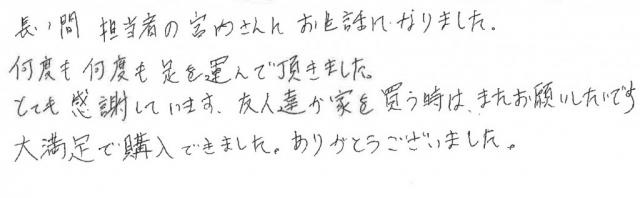 長い間 担当者の宮内さんに お世話になりました。
何度も 何度も 足を運んで頂きました。
とても 感謝しています。友人達が家を買う時は、またお願いしたいです
大満足で購入できました。ありがとうございました。